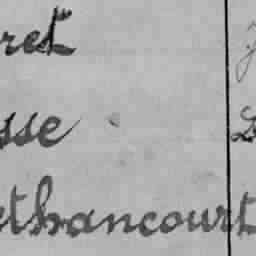 ret
sse
ethancourt